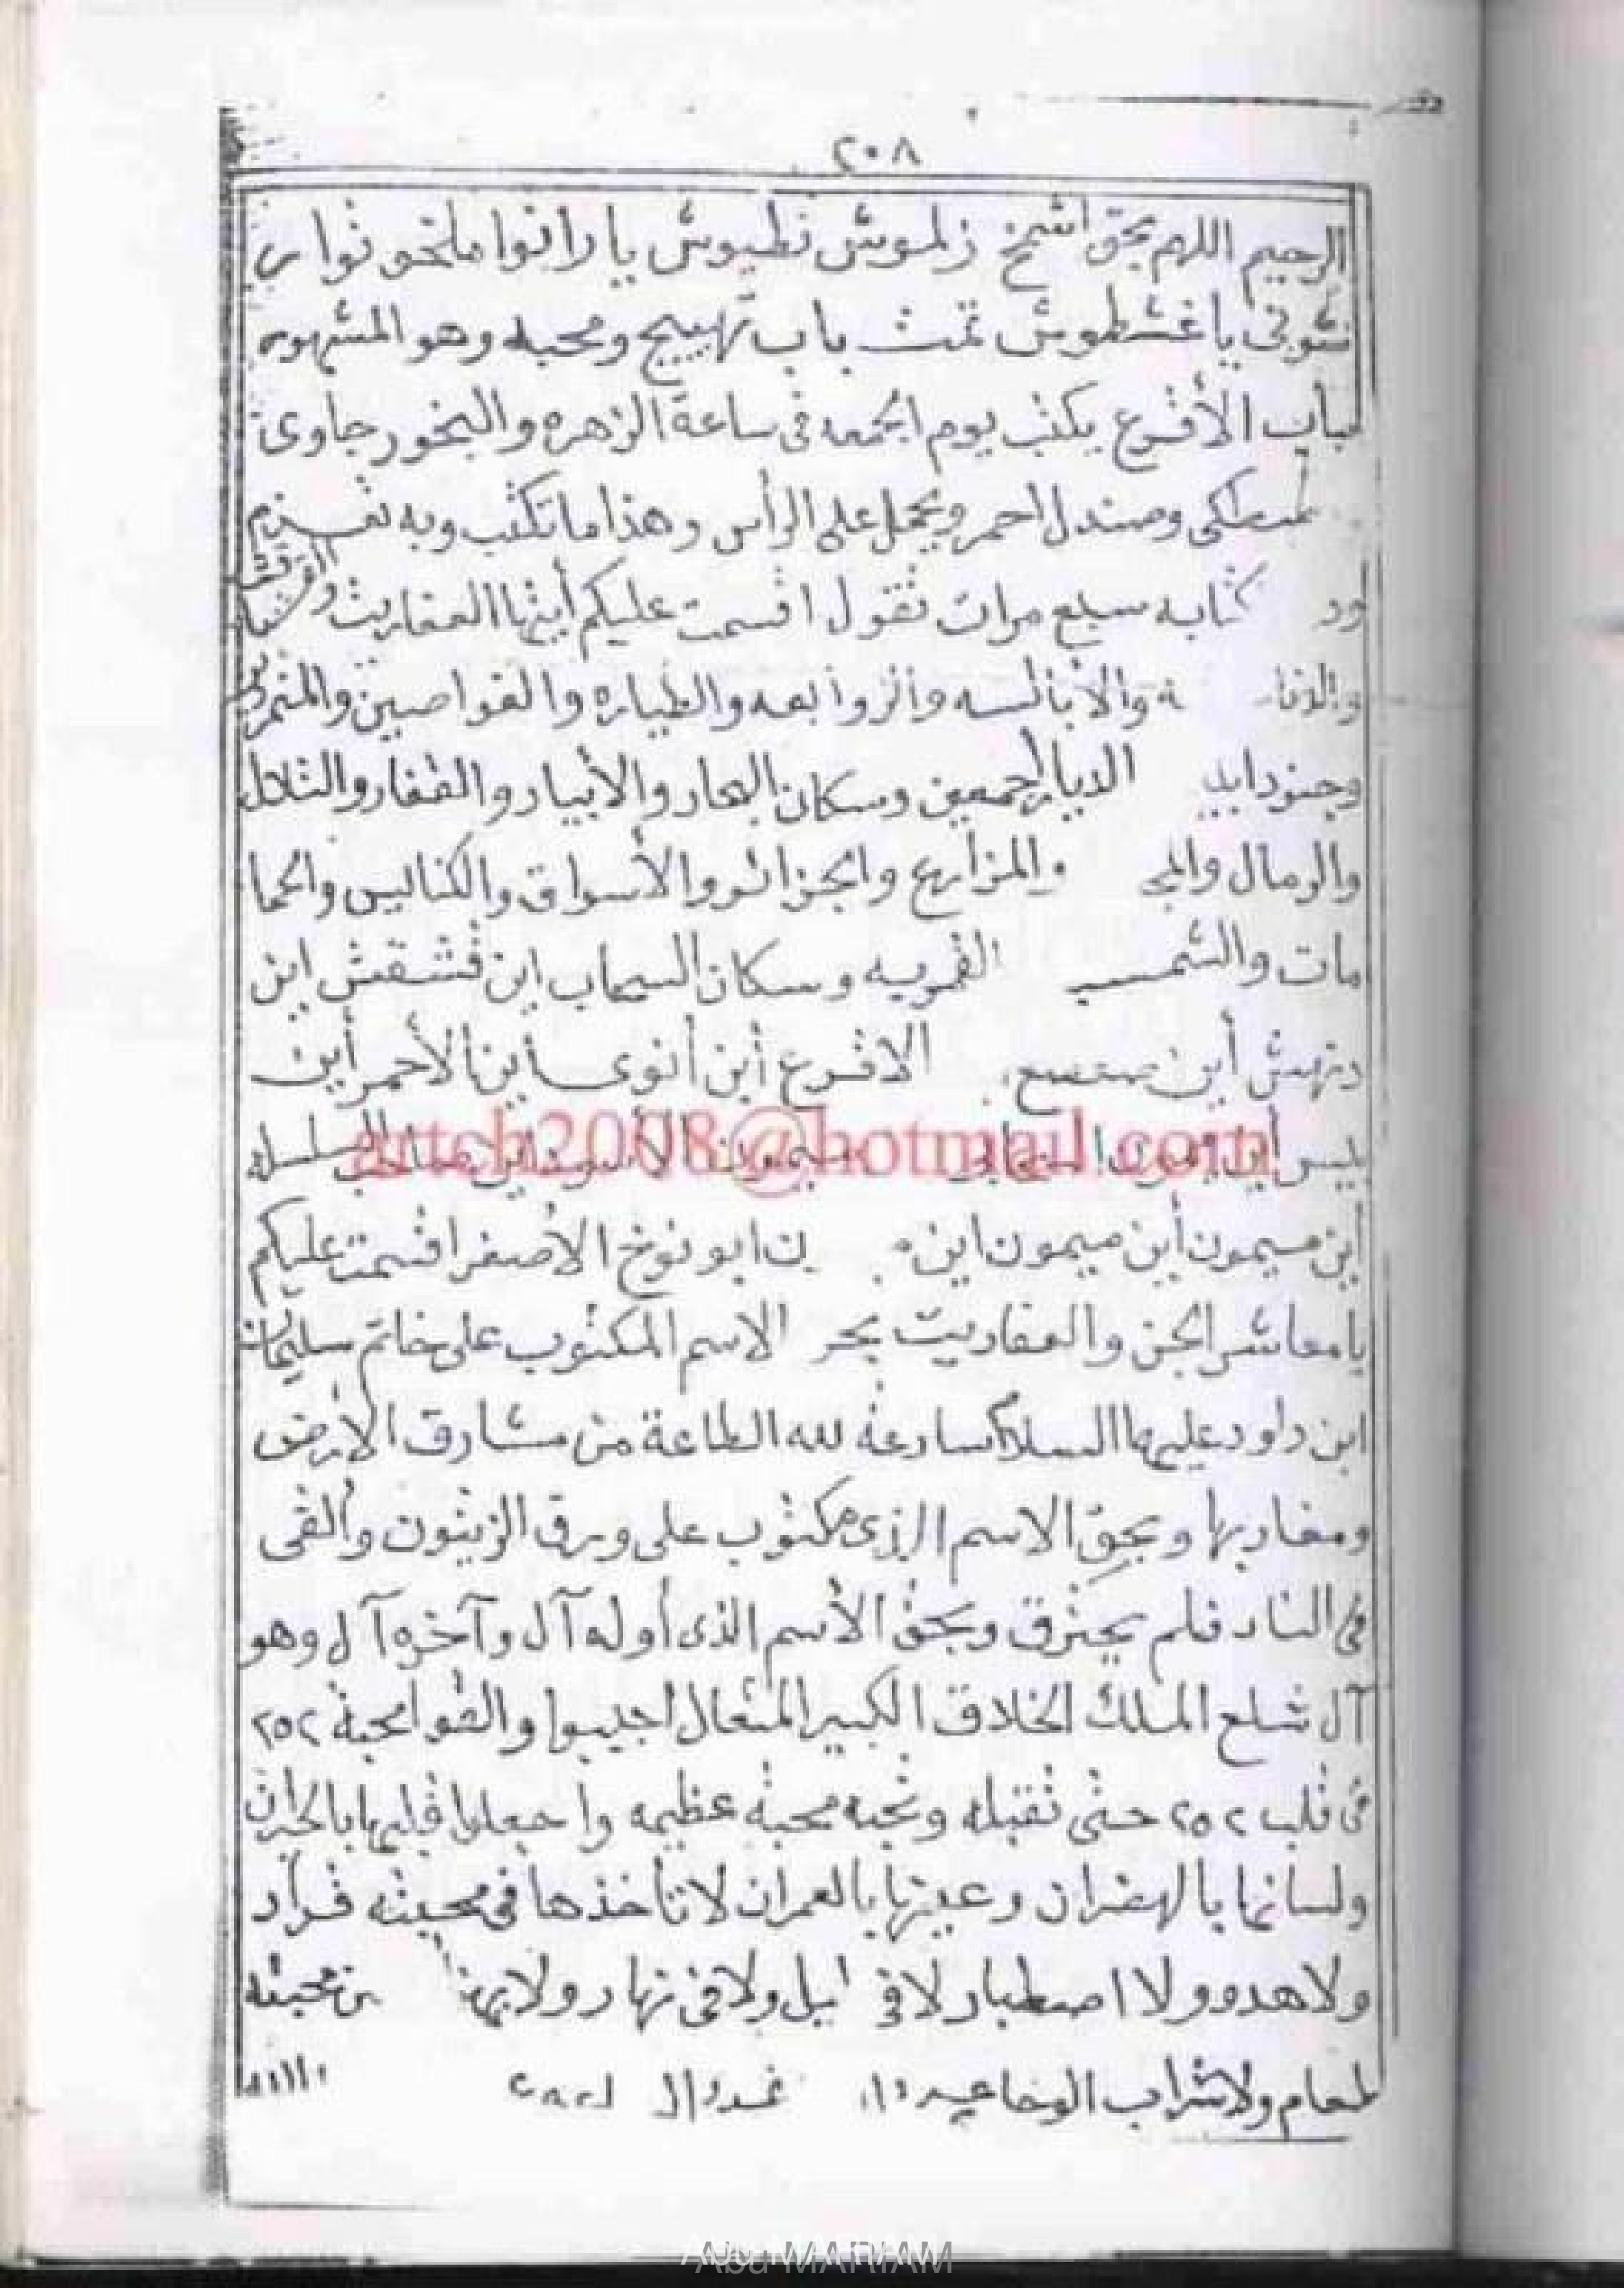 ٢٠٨
الرحيم اللهم بحق أشمخ زلموش نطيوش يا رانوا ملخو نوا
يا غشطموش تمت باب تهييج ومحبه وهو المشهور
بباب الأقرع يكتب يوم الجمعه فى ساعة الزهره والبخور جاوى
وصندل احمر ويحمل على الرأس وهذا ما تكتب وبه تعسزم
كتابه سبع مرات تقول اقسمت عليكم أيتها العفاريت
والأبالسه والزوابعه والطياره والغواصين والمتمردين
وجنود اجمعين وسكان البحار والأبيار والقفار والتلال
والرمال والمزأرع والجزائر والأسواق والكنائيس والحما
مات القمريه وسكان السحاب اين قشقش اين
دنهش أين الاقرع أين أين الأحمر أين
artch2008@hotmail.com
السلسله
أين ميمون أين ميمون اين ابو نوخ الأصفر اقسمت عليكم
يا معاشر الجن والعفاريت الاسم المكتوب على خاتم سليمان
ابن داود عليهما السلام سارعة لله الطاعة من مشارق الارض
ومغاربها وبحق الاسم الزى مكتوب على ورق الزيتون وألقى
فى النار فلم يحترق وبحق الأسم الذى أوله آل وآخره آل وهو
آل شلع الملك الخلاق الكبير المتعال اجيبوا والقوا محبة ٢٥٢
فى قلب ٢٥٢ حتى تقبله وتحبه محبة عظيمه واجعلوا قلبها بالخزان
ولسانها بالهفران وعينها بالعمران لا تأخذها فى محبته قرار
ولا هدو ولا اصطبار لا فى ليل ولا فى نهار ولا محبته
طعام ولا شراب الوحا
Abu MARIAM